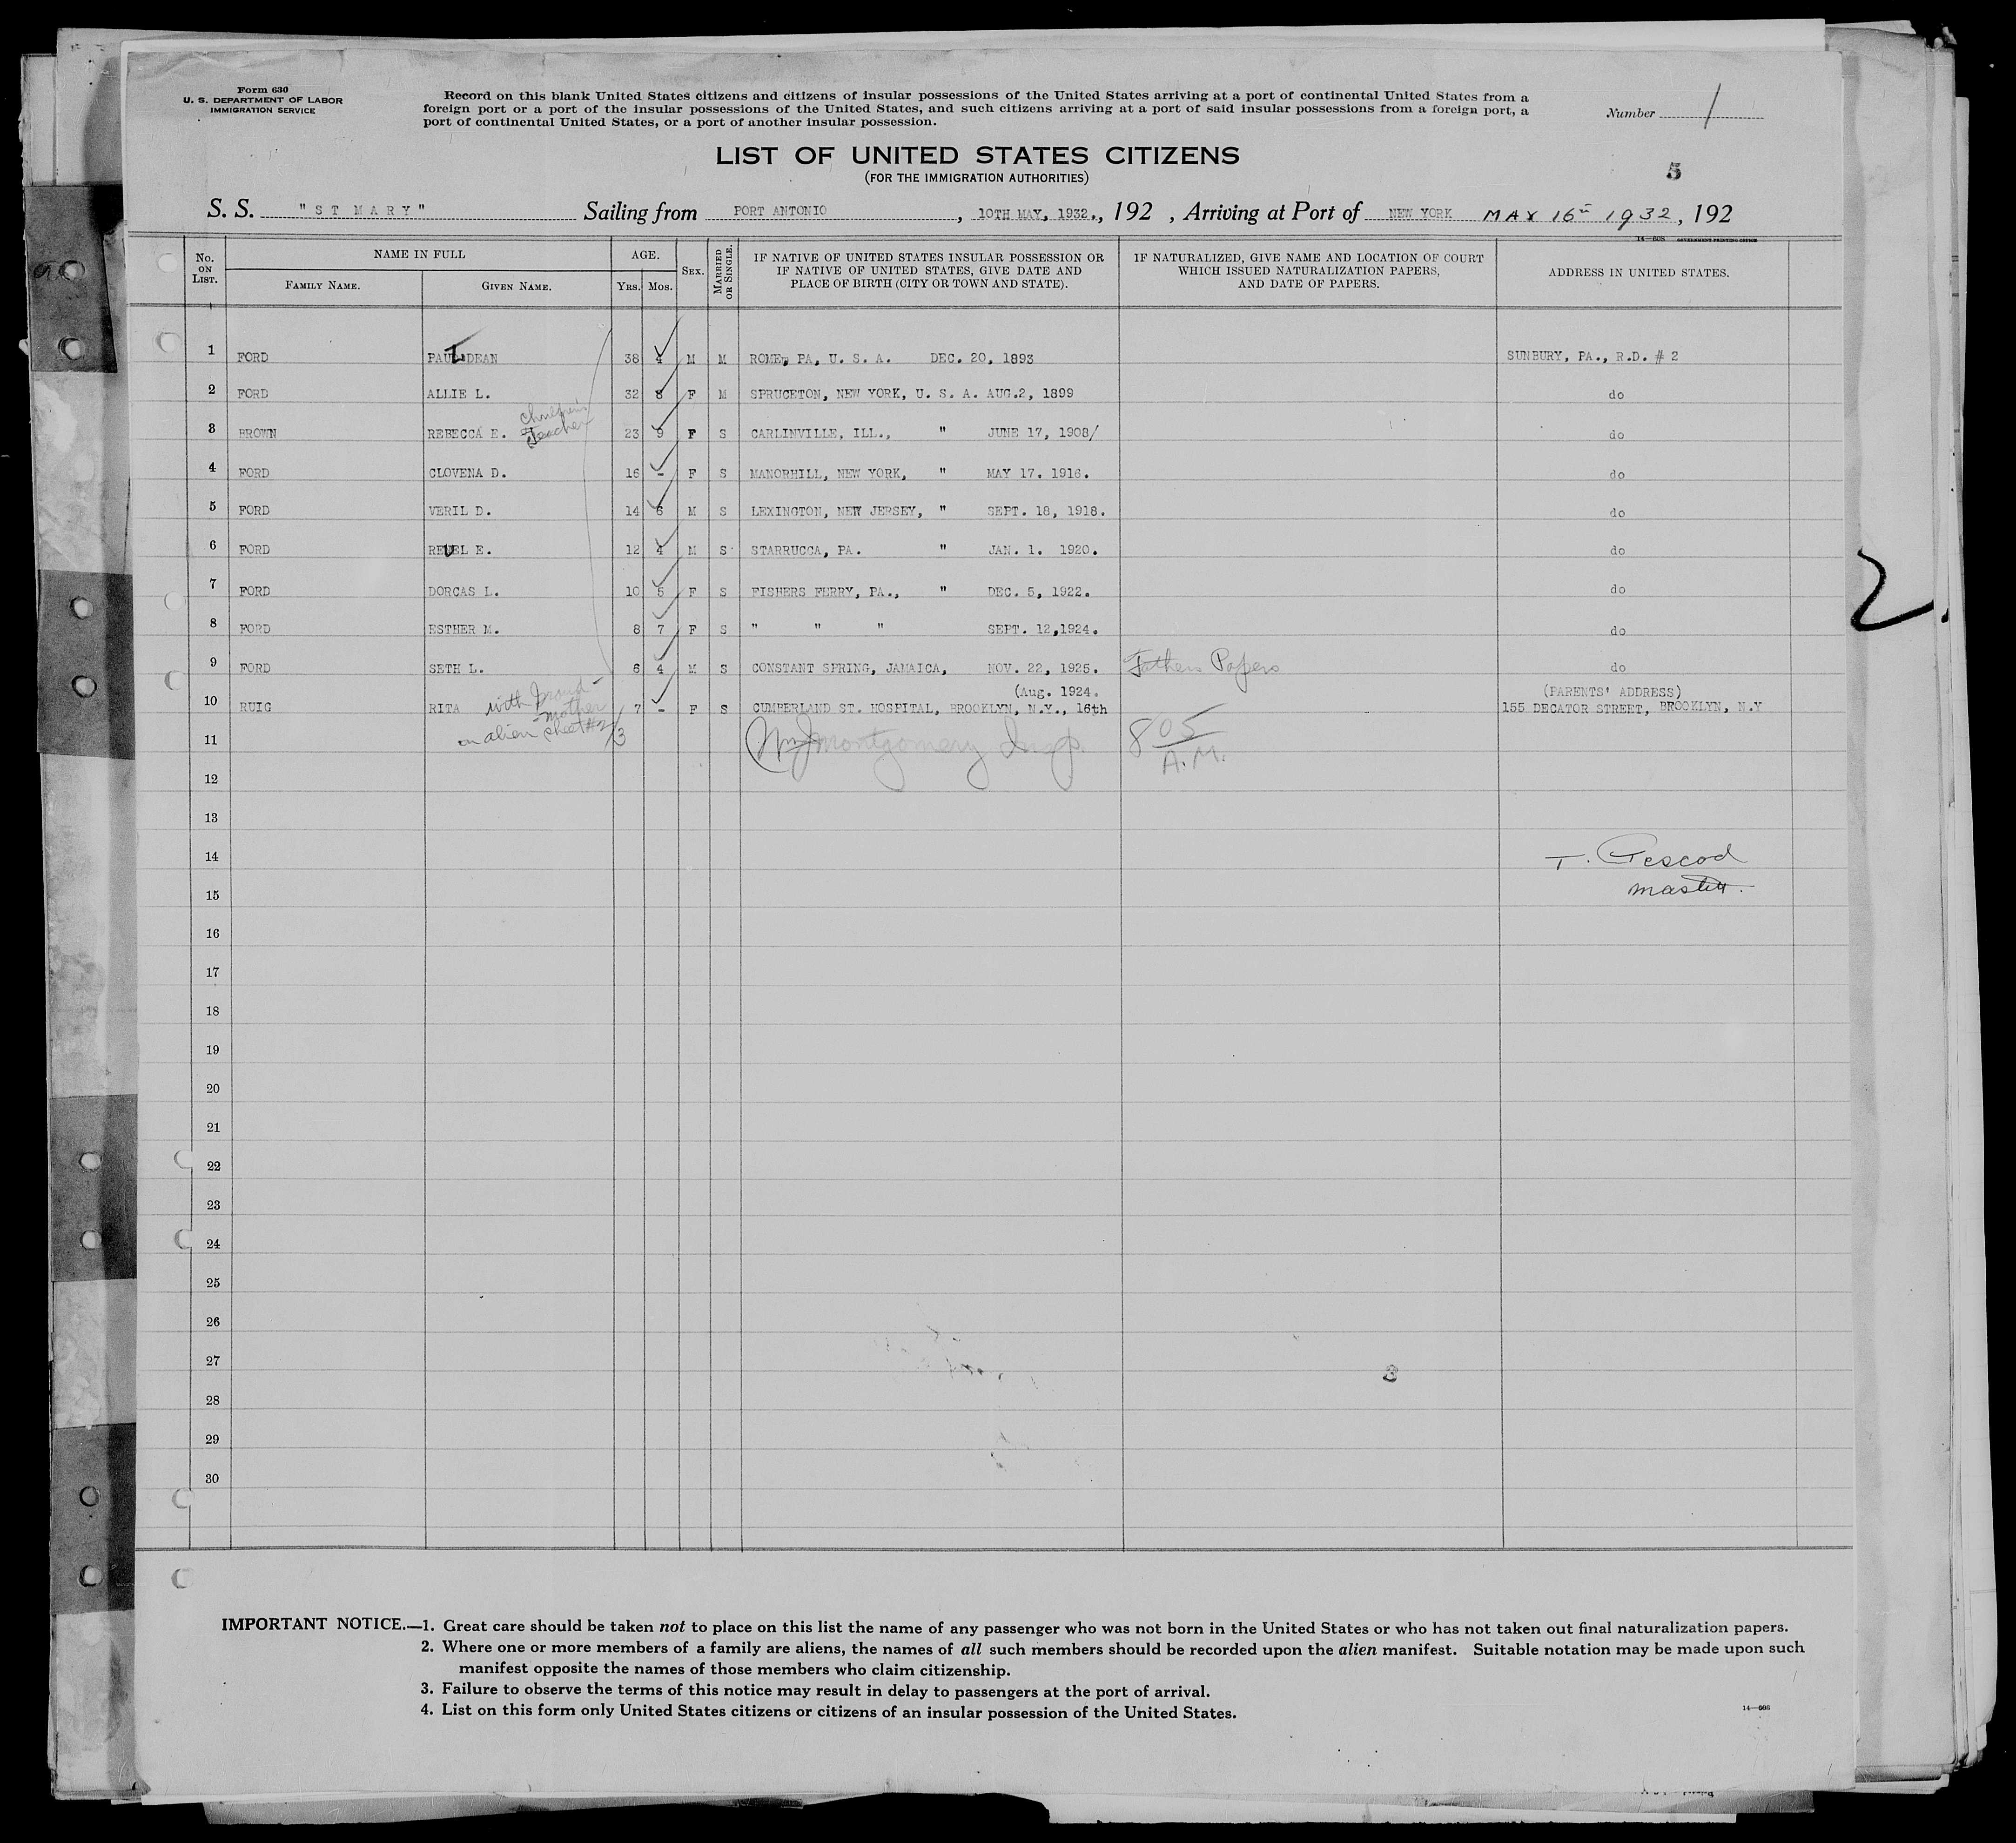 Form 630
U. S. DEPARTMENT OF LABOR
IMMIGRATION SERVICE
Record on this blank United States citizens and citizens of insular possessions of the United States arriving at a port of continental United States from a
foreign port or a port of the insular possessions of the United States, and such citizens arriving at a port of said insular possessions from a foreign port, a
port of continental United States, or a port of another insular possession.
Number 1
LIST OF UNITED STATES CITIZENS
(FOR THE IMMIGRATION AUTHORITIES)
5
S. S. "ST MARY" Sailing from PORT ANTONIO, 10TH MAY, 1932., 192 , Arriving at Port of NEW YORK MAY 16th 1932, 192
14—608 GOVERNMENT PRINTING OFFICE
No. ON LIST. NAME IN FULL FAMILY NAME. GIVEN NAME. AGE. YRS. MOS. SEX. MARRIED OR SINGLE. IF NATIVE OF UNITED STATES INSULAR POSSESSION OR IF NATIVE OF UNITED STATES, GIVE DATE AND PLACE OF BIRTH (CITY OR TOWN AND STATE). IF NATURALIZED, GIVE NAME AND LOCATION OF COURT WHICH ISSUED NATURALIZATION PAPERS, AND DATE OF PAPERS. ADDRESS IN UNITED STATES.
1 FORD PAUL DEAN 38 4 M M ROME, PA, U. S. A. DEC. 20, 1893 SUNBURY, PA., R.D. # 2
2 FORD ALLIE L. 32 8 F M SPRUCETON, NEW YORK, U. S. A. AUG.2, 1899 do
3 BROWN REBECCA E. Children's Teacher 23 9 F S CARLINVILLE, ILL., " JUNE 17, 1908/ do
4 FORD CLOVENA D. 16 - F S MANORHILL, NEW YORK, " MAY 17. 1916. do
5 FORD VERIL D. 14 6 M S LEXINGTON, NEW JERSEY, " SEPT. 18, 1918. do
6 FORD REUEL E. 12 4 M S STARRUCCA, PA. " JAN. 1. 1920. do
7 FORD DORCAS L. 10 5 F S FISHERS FERRY, PA., " DEC. 5, 1922. do
8 FORD ESTHER M. 8 7 F S " " " SEPT. 12,1924. do
9 FORD SETH L. 6 4 M S CONSTANT SPRING, JAMAICA, NOV. 22, 1925. Fathers Papers do
(Aug. 1924. (PARENTS' ADDRESS)
10 RUIG RITA with Grand-mother on alien sheet #2/3 7 - F S CUMBERLAND ST. HOSPITAL, BROOKLYN, N.Y., 16th 155 DECATOR STREET, BROOKLYN, N.Y
11 Montgomery Insp. 8 05 A.M.
12
13
14 T.
15 Master.
16
17
18
19
20
21
22
23
24
25
26
27 3
28
29
30
IMPORTANT NOTICE.—1. Great care should be taken not to place on this list the name of any passenger who was not born in the United States or who has not taken out final naturalization papers.
2. Where one or more members of a family are aliens, the names of all such members should be recorded upon the alien manifest. Suitable notation may be made upon such
manifest opposite the names of those members who claim citizenship.
3. Failure to observe the terms of this notice may result in delay to passengers at the port of arrival.
4. List on this form only United States citizens or citizens of an insular possession of the United States.
14—608
2